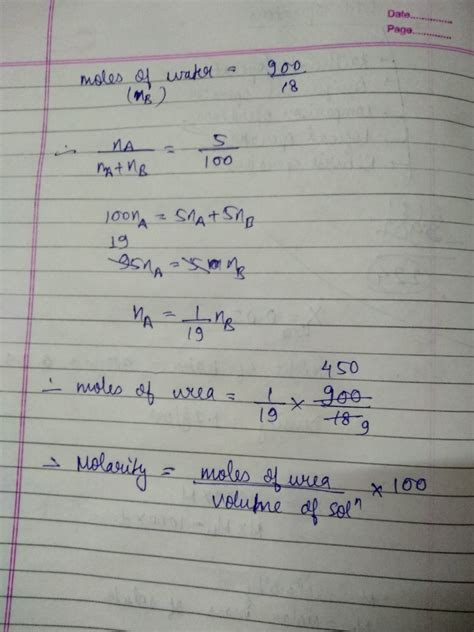 Date.............
Page.............
moles of water = 900/18
(nB)
∴ nA/(nA+nB) = 5/100
100nA = 5nA + 5nB
19
95nA = 5 nB
nA = 1/19 nB
450
∴ moles of urea = 1/19 × 900/18 9
→ Molarity = moles of urea/volume of solⁿ × 100